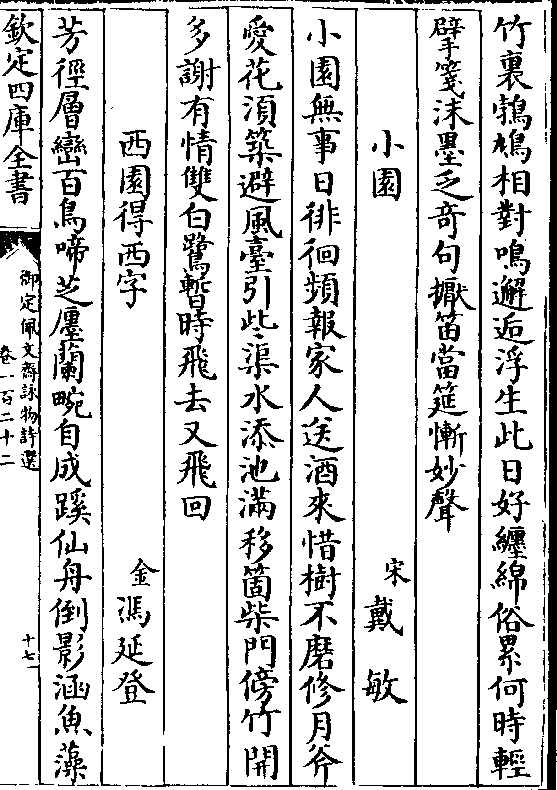 竹裏鵓鳩相對鳴邂逅浮生此日好纒綿俗累何時輕
擘箋沫墨乏奇句擫笛當筵慚妙聲
小園
宋戴敏
小園無事日徘徊頻報家人送酒來惜樹不磨修月斧
愛花須築避風臺引些渠水添池滿移箇柴門傍竹開
多謝有情雙白鷺暫時飛去又飛回
西園得西字
金馮延登
芳徑層巒百鳥啼芝廛蘭畹自成蹊仙舟倒影涵魚藻
欽定四庫全書
御定佩文齋詠物詩選
卷一百二十二
十七